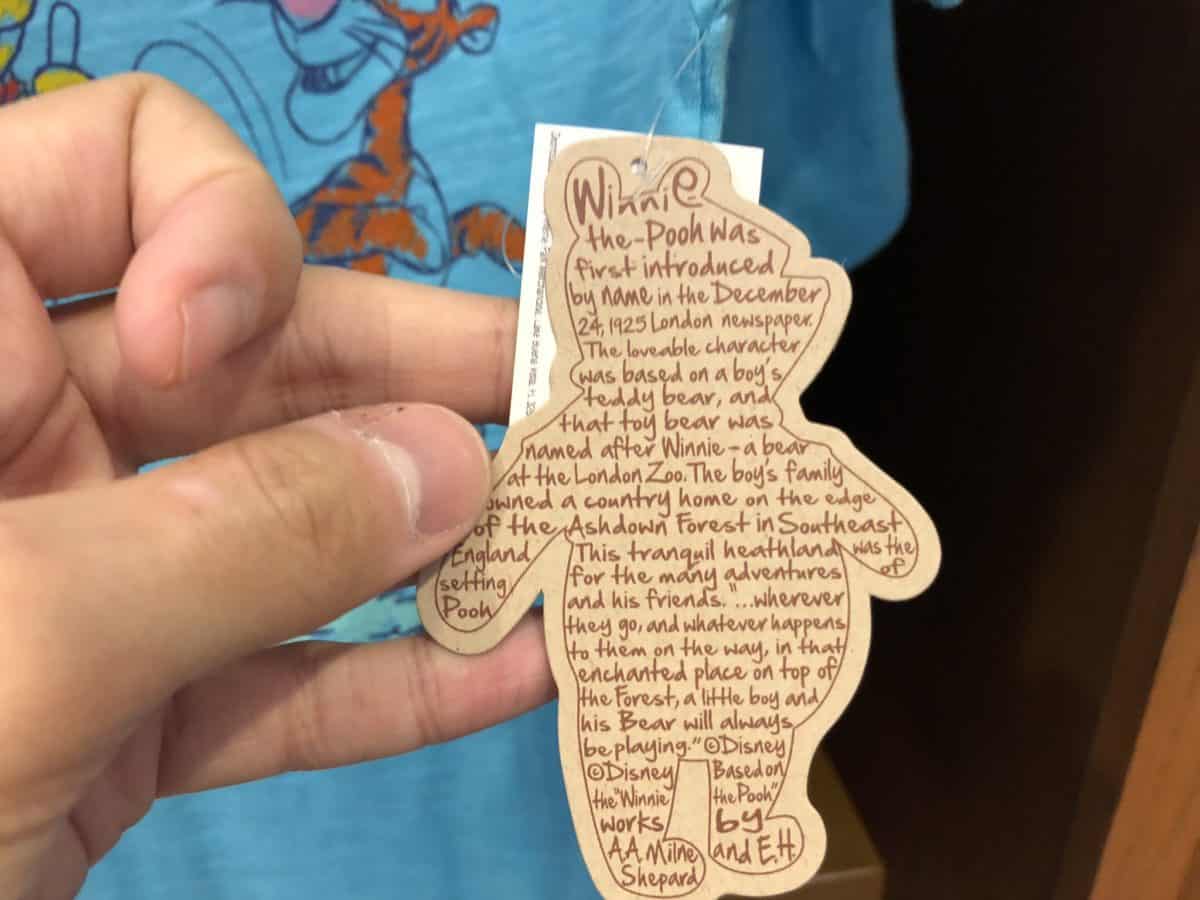 Winnie
the-Pooh was
first introduced
by name in the December
24, 1925 London newspaper.
The loveable character
was based on a boy's
teddy bear, and
that toy bear was
named after Winnie-a bear
at the London Zoo. The boy's family
owned a country home on the edge
of the Ashdown Forest in Southeast
England This tranquil heathland was the
setting for the many adventures of
Pooh and his friends. "...wherever
they go, and whatever happens
to them on the way, in that
enchanted place on top of
the Forest, a little boy and
his Bear will always
be playing." ©Disney
©Disney Based on
the "Winnie the Pooh"
works by
A.A. Milne and E.H.
Shepard